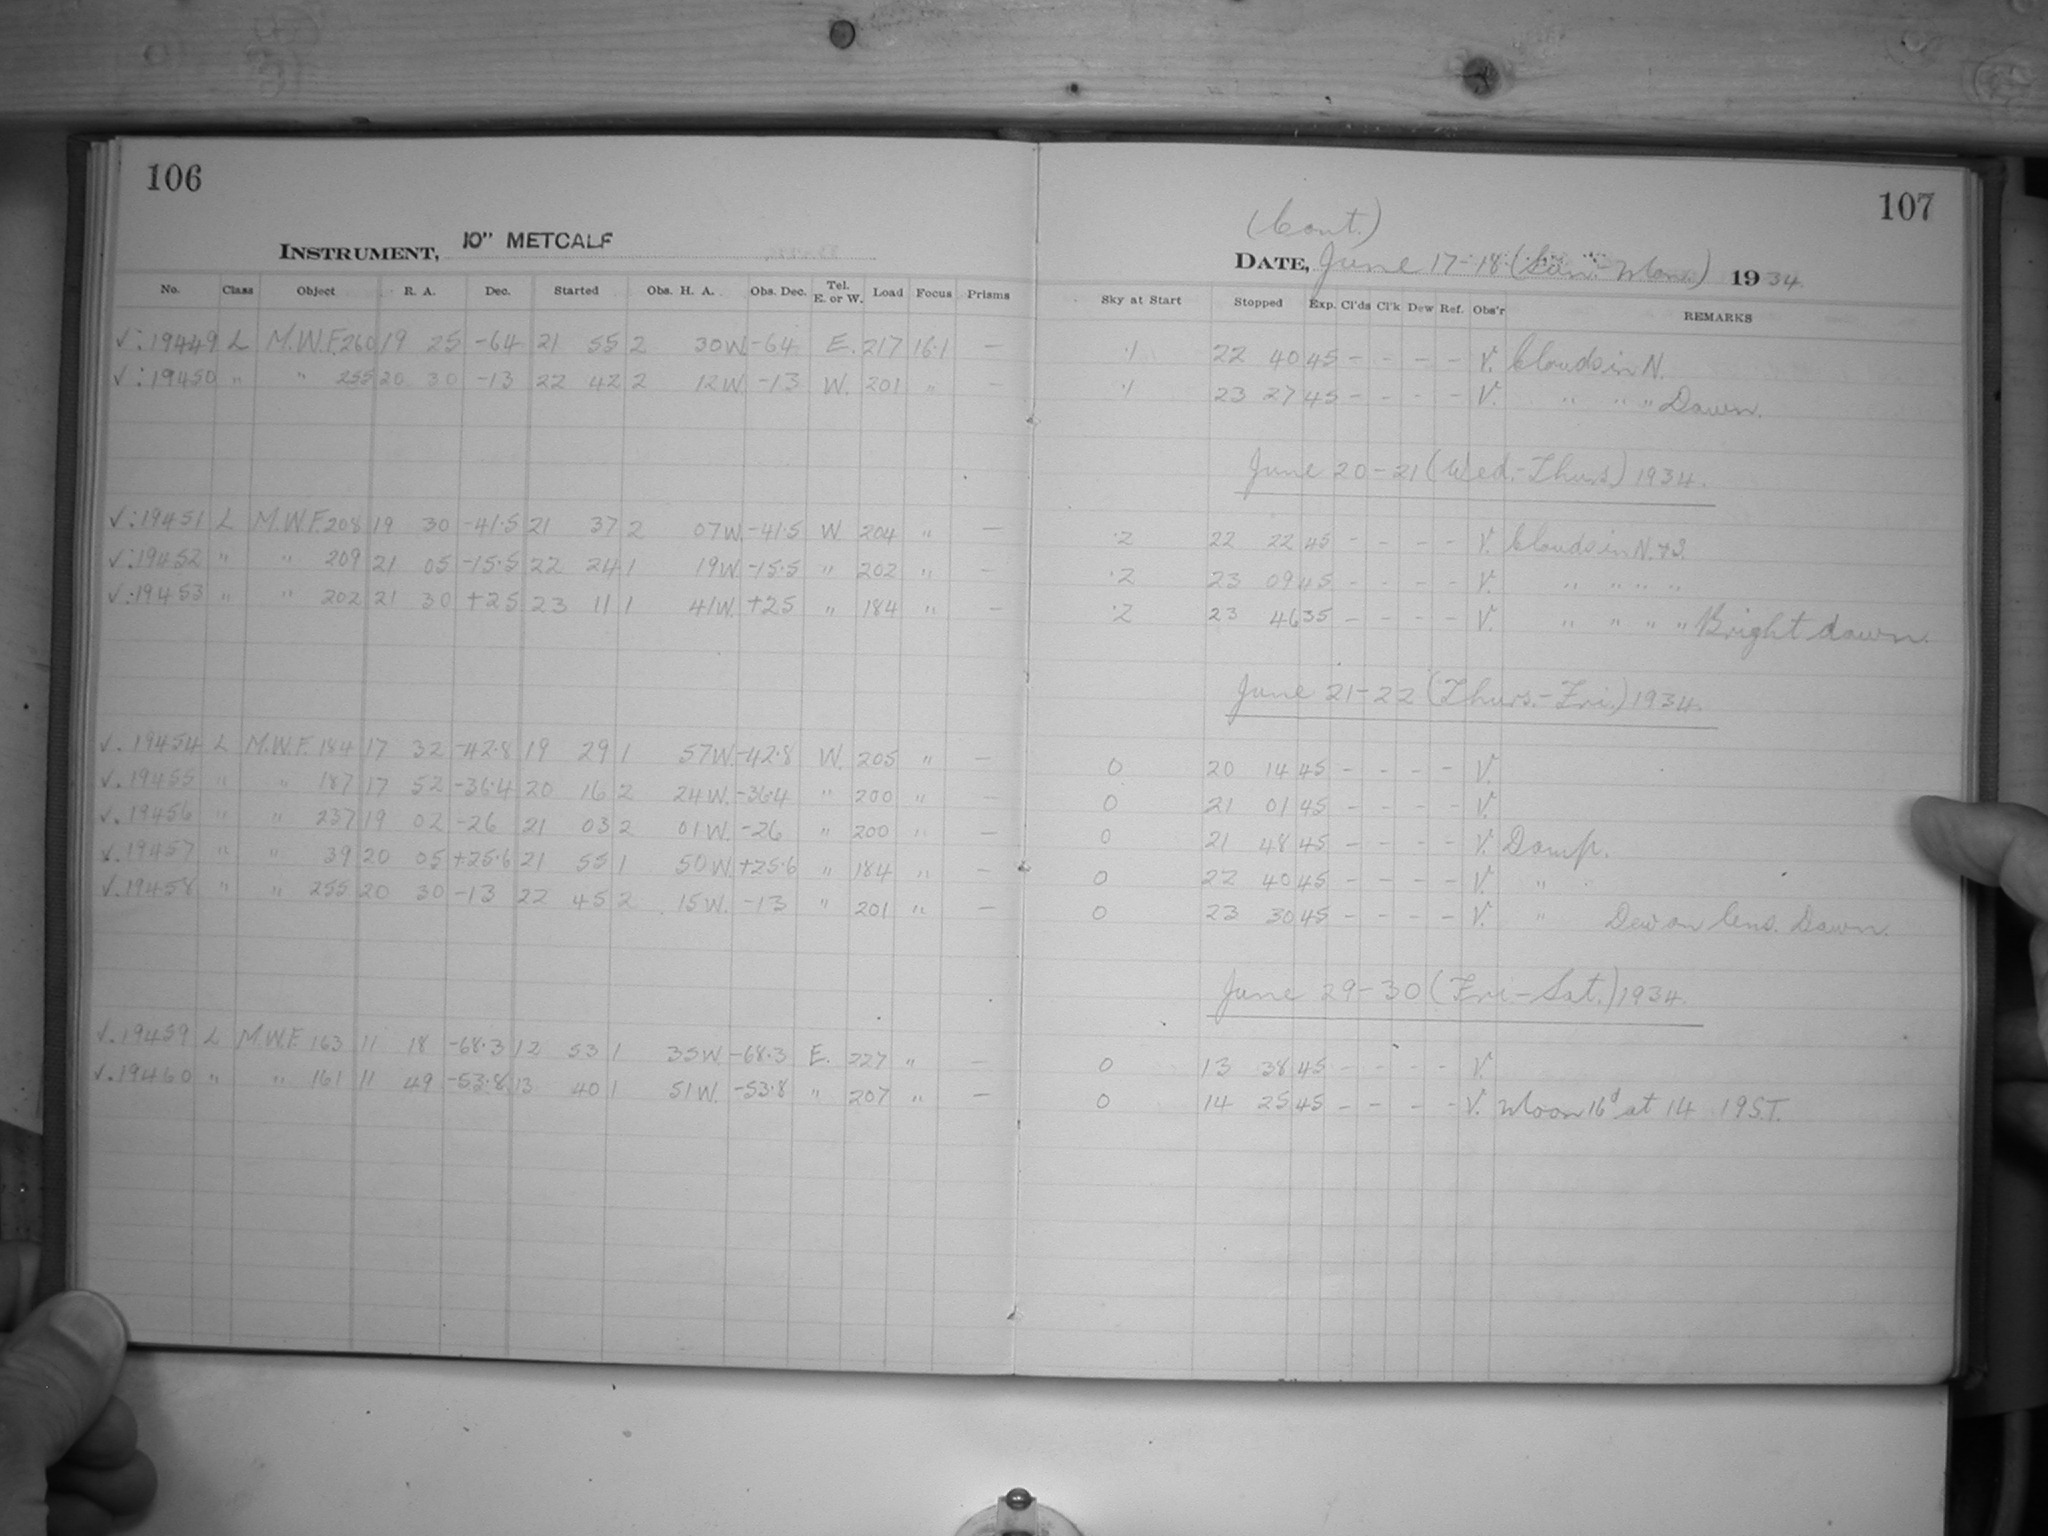 106
107
(Cont.)
INSTRUMENT, 10" METCALF
DATE, June 17-18 (Sun.-Mon.) 1934.
No. Class Object R. A. Dec. Started Obs. H. A. Obs. Dec. Tel. E. or W. Load Focus Prisms Sky at Start Stopped Exp. Cl'ds Cl'k Dew Ref. Obs'r REMARKS
√: 19449 L M.W.F. 260 19 25 -64 21 55 2 30W. -64 E. 217 16.1 — .1 22 40 45 - - - - V. Clouds in N.
√: 19450 " " 255 20 30 -13 22 42 2 12W. -13 W. 201 " — .1 23 27 45 - - - - V. " " " Dawn.
June 20-21 (Wed.-Thurs) 1934.
√: 19451 L M.W.F. 208 19 30 -41.5 21 37 2 07W. -41.5 W. 204 " — .2 22 22 45 - - - - V. Clouds in N. & S.
√: 19452 " " 209 21 05 -15.5 22 24 1 19W. -15.5 " 202 " — .2 23 09 45 - - - - V. " " " "
√: 19453 " " 202 21 30 +25 23 11 1 41W. +25 " 184 " — .2 23 46 35 - - - - V. " " " " Bright dawn.
June 21-22 (Thurs.-Fri.) 1934.
√. 19454 L M.W.F. 184 17 32 -42.8 19 29 1 57W. -42.8 W. 205 " — 0 20 14 45 - - - - V.
√. 19455 " " 187 17 52 -36.4 20 16 2 24W. -36.4 " 200 " — 0 21 01 45 - - - - V.
√. 19456 " " 237 19 02 -26 21 03 2 01W. -26 " 200 " — 0 21 48 45 - - - - V. Damp.
√. 19457 " " 39 20 05 +25.6 21 55 1 50W. +25.6 " 184 " — 0 22 40 45 - - - - V. "
√. 19458 " " 255 20 30 -13 22 45 2 15W. -13 " 201 " — 0 23 30 45 - - - - V. " Dew on lens. Dawn.
June 29-30 (Fri-Sat.) 1934.
√. 19459 L M.W.F. 163 11 18 -68.3 12 53 1 35W. -68.3 E. 227 " — 0 13 38 45 - - - - V.
√. 19460 " " 161 11 49 -53.8 13 40 1 51W. -53.8 " 207 " — 0 14 25 45 - - - - V. Moon 16d at 14 19 S.T.